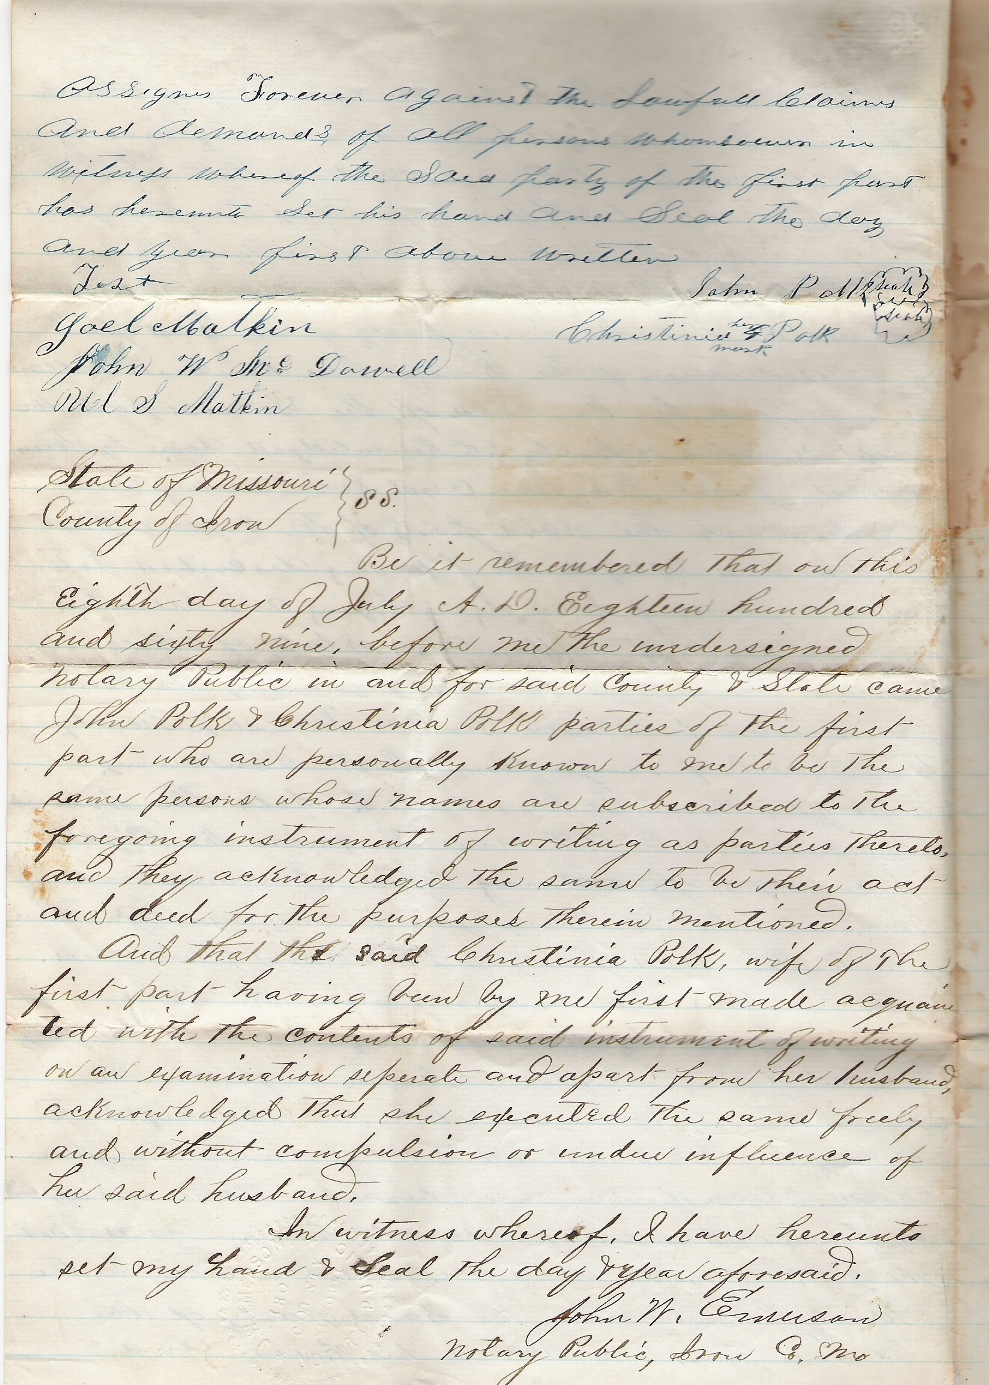 Assignes Forever against the Lawfull Claims
And demands of all persons whomsoever in
witness whereof the Said party of the first part
has hereunto Set his hand and Seal the day
and year first above written
Test
John Polk (seal)
Joel Matkin
Christinia her X mark Polk (seal)
John W McDowell
S Matkin
State of Missouri } SS.
County of Iron
Be it remembered that on this
Eighth day of July A.D. Eighteen hundred
and sixty nine, before me the undersigned
Notary Public in and for said County & State came
John Polk & Christinia Polk parties of the first
part who are personally known to me to be the
same persons whose names are subscribed to the
foregoing instrument of writing as parties thereto,
and they acknowledged the same to be their act
and deed for the purposes therein mentioned.
And that the said Christinia Polk, wife of the
first part having been by me first made acquain
ted with the contents of said instrument of writing
on an examination seperate and apart from her husband,
acknowledged that she executed the same freely
and without compulsion or undue influence of
her said husband.
In witness whereof, I have hereunto
set my hand & Seal the day & year aforesaid.
John W. Emerson
Notary Public, Iron Co. Mo